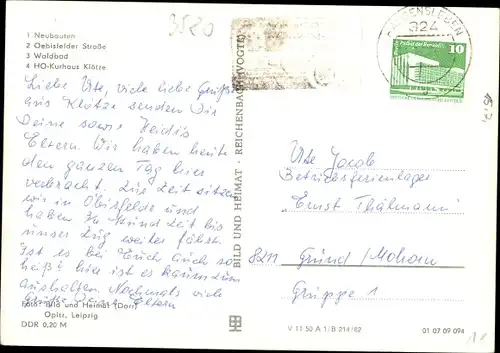 1 Neubauten
2 Oebisfelder Straße
3 Waldbad
4 HO-Kurhaus Klötze
3520
Liebe Ute, viele liebe Grüße
aus Klötze senden Dir
Deine sowie Heidis
Eltern. Wir haben heute
den ganzen Tag hier
verbracht. Zur Zeit sitzen
wir in Obisfelde und
haben Stund Zeit bis
unser Zug weiter fährt.
Ist es bei Euch auch so
heiß? hier ist es kaum zum
Aushalten. Nochmals viele
Grüße Deine Eltern
Foto: Bild und Heimat (Dorr)
Opitz, Leipzig
DDR 0,20 M
BILD UND HEIMAT · REICHENBACH (VOGTL)
324
10
Ute
Betriebsferienlager
"Ernst Thälmann"
8211 Gründ/Mohorn
Gruppe 1
V 11 50 A 1/B 214/82
01 07 09 094